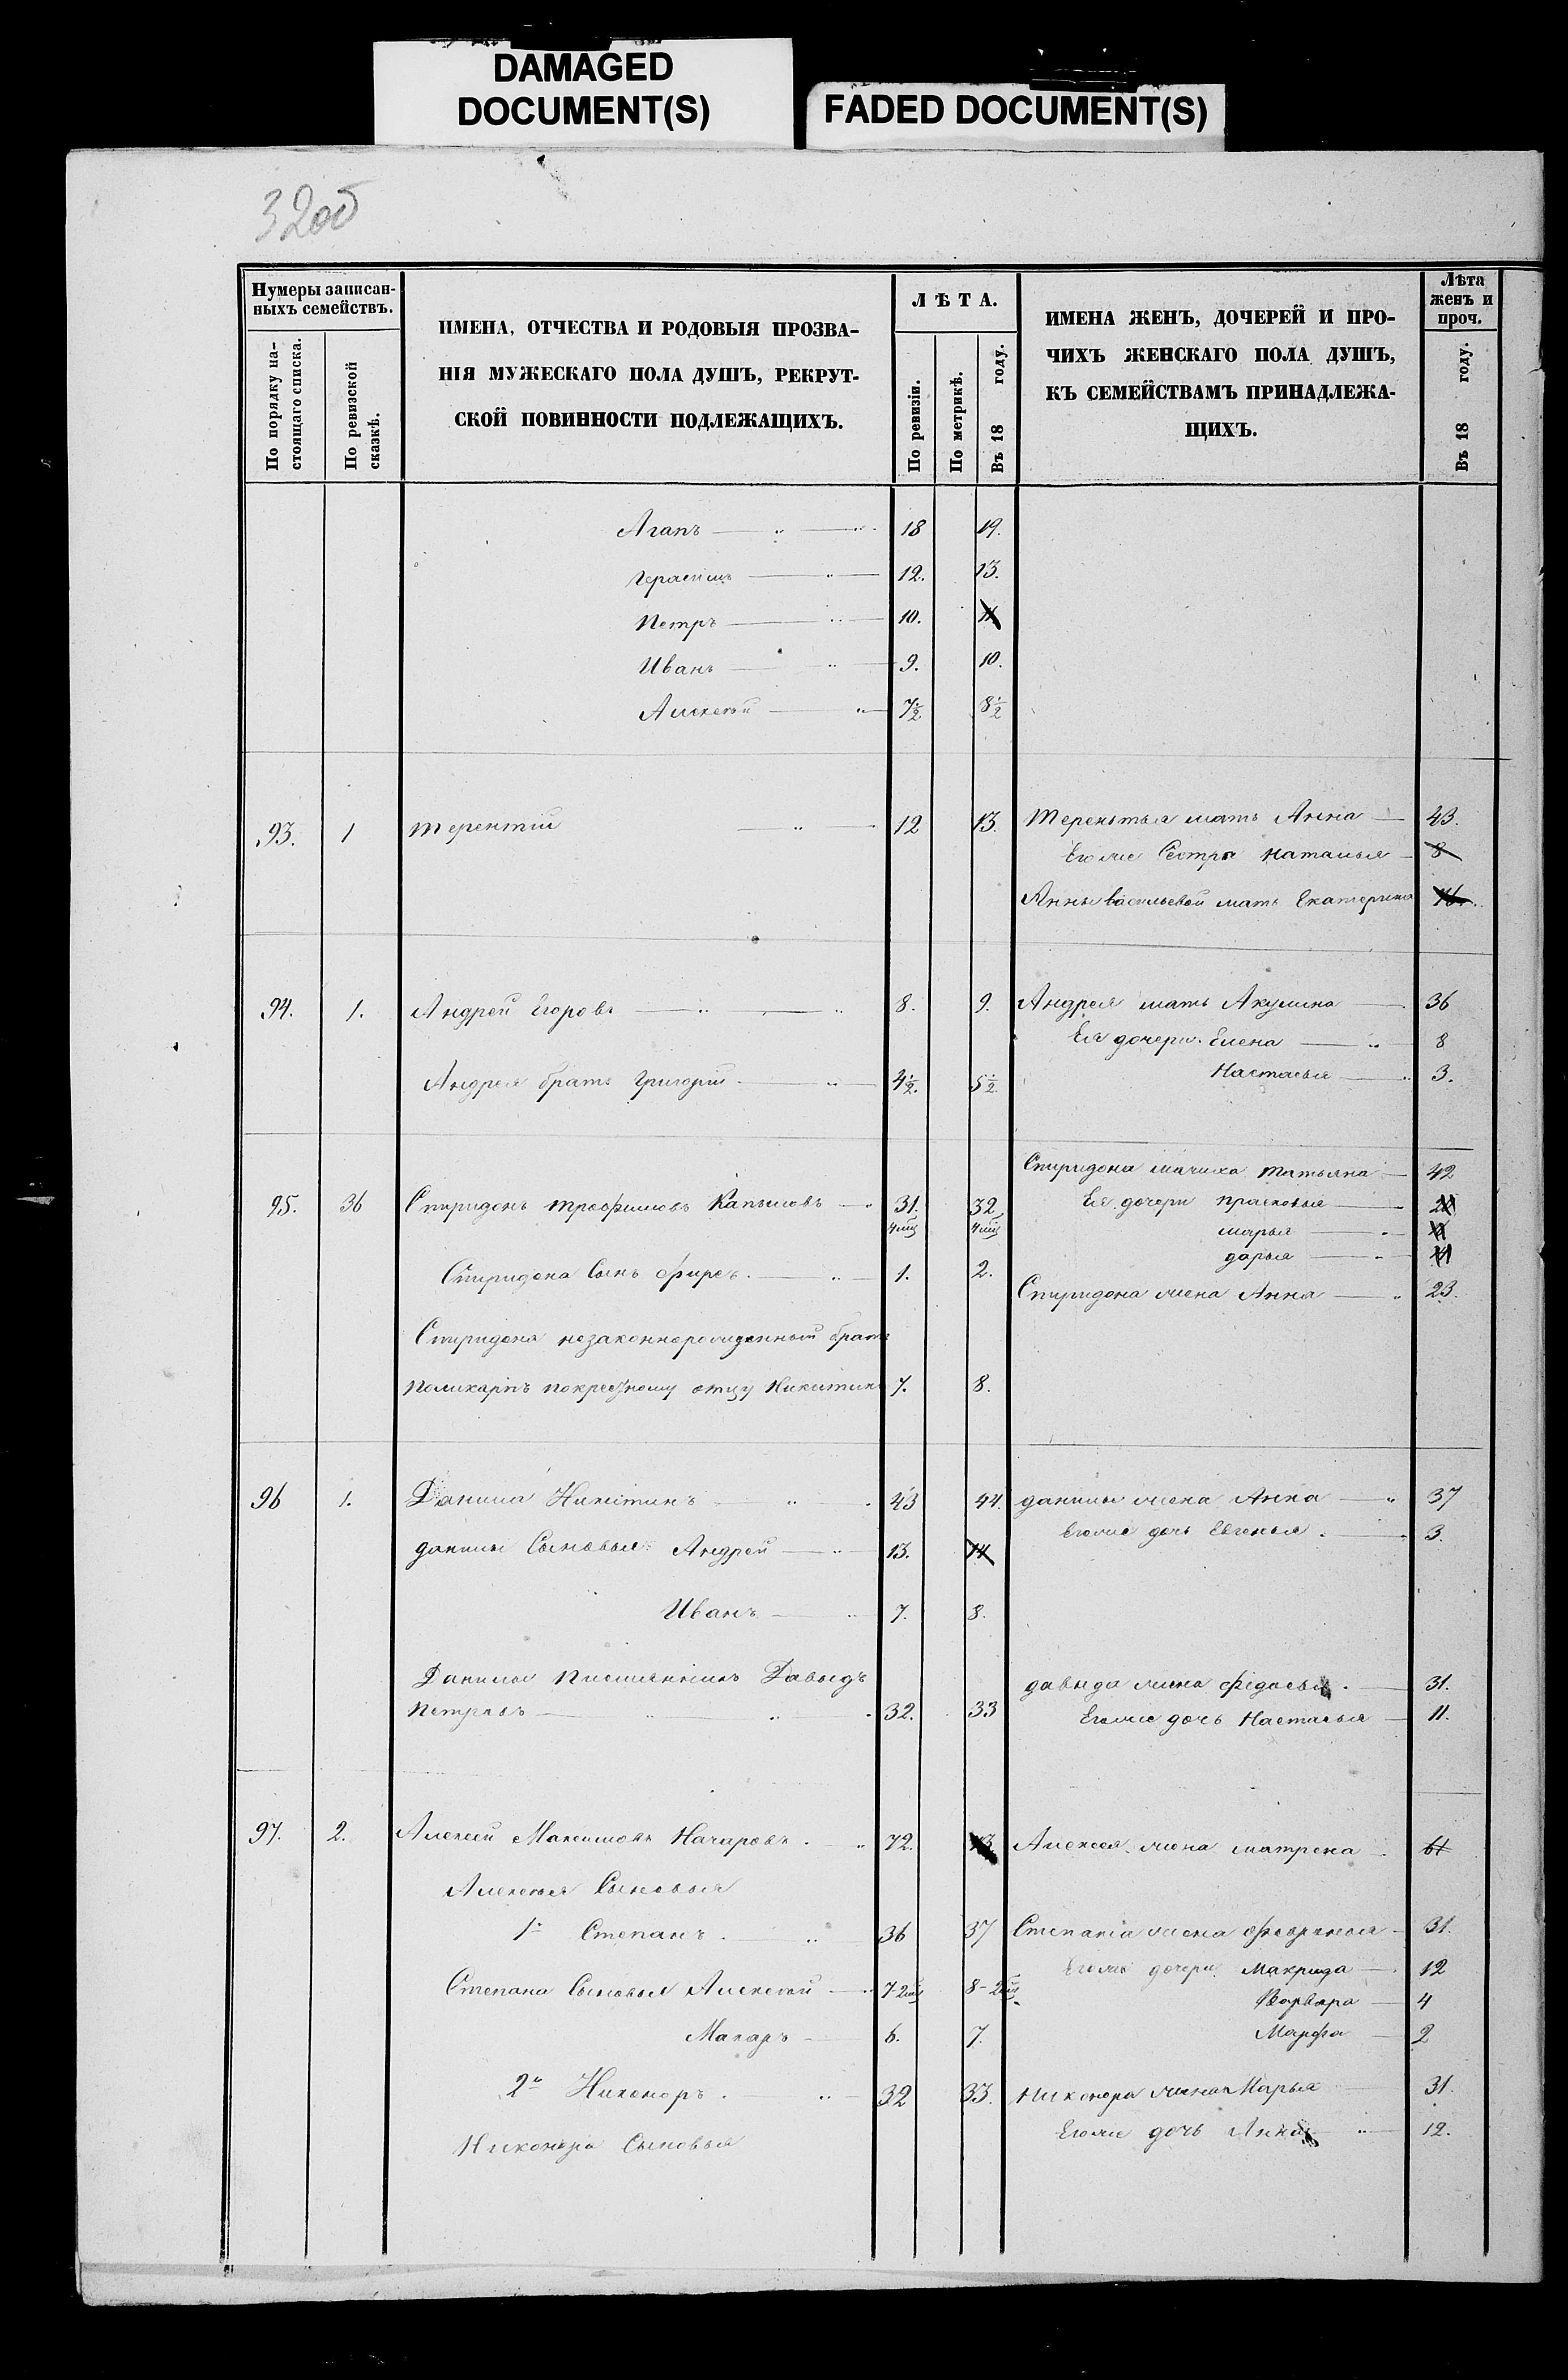 DAMAGED
DOCUMENT(S)
FADED DOCUMENT(S)
32об
Нумеры записан-
ныхъ семействъ.
По порядку на-
стоящаго списка.
По ревизской
сказкѣ.
ИМЕНА, ОТЧЕСТВА И РОДОВЫЯ ПРОЗВА-
НІЯ МУЖЕСКАГО ПОЛА ДУШЪ, РЕКРУТ-
СКОЙ ПОВИННОСТИ ПОДЛЕЖАЩИХЪ.
ЛѢТА.
По ревизіи.
По метрикѣ.
Въ 18 году.
ИМЕНА ЖЕНЪ, ДОЧЕРЕЙ И ПРО-
ЧИХЪ ЖЕНСКАГО ПОЛА ДУШЪ,
КЪ СЕМЕЙСТВАМЪ ПРИНАДЛЕЖА-
ЩИХЪ.
Лѣта
женъ и
проч.
Въ 18 году.
Агапъ 18 19.
Герасимъ 12. 13.
Петръ 10. 11
Иванъ 9. 10.
Алексѣй 7½ 8½
93. 1 Терентій 12 13. Терентья мать Анна 43.
Его же Сестра Наталья 8
Анны Васильевой мать Екатерина
94. 1. Андрей Егоровъ 8. 9. Андрея мать Акулина 36
Ея дочери Елена 8
Андрея братъ Григорій 4½. 5½ Настасья 3.
Спиридона мачиха Татьяна 42
95. 36 Спиридонъ Трофимовъ 31. 32 Ея дочери Прасковья
4 мѣц 4 мѣц Марья
Дарья
Спиридона Сынъ Фирсъ. 1. 2.
Спиридона жена Анна 23.
Спиридона незаконнорожденный братъ
Поликарпъ по крестному отцу Никитинъ 7. 8.
96 1. Данила Никитинъ 43 44. Данилы жена Анна 37
Его же дочь Евгенья. 3.
Данилы Сыновья: Андрей 13. 14
Иванъ 7. 8.
Данилы Племянникъ Давыдъ
Петровъ 32. 33
Давыда жена Федосья. 31.
Его же дочь Настасья 11.
97. 2. Алексей Максимовъ Назаровъ. 72. 73 Алексея жена Матрена 61
Алексея Сыновья
1й Степанъ. 36 37 Степана жена Февронья 31.
Его же дочери Макрида 12
Степана Сыновья Алексѣй 7-2мц 8-2мц
Варвара 4
Макаръ 6. 7. Марфа 2
2й Никоноръ. 32 33. Никонора жена Марья 31.
Его же дочь Анна 12.
Никонора Сыновья